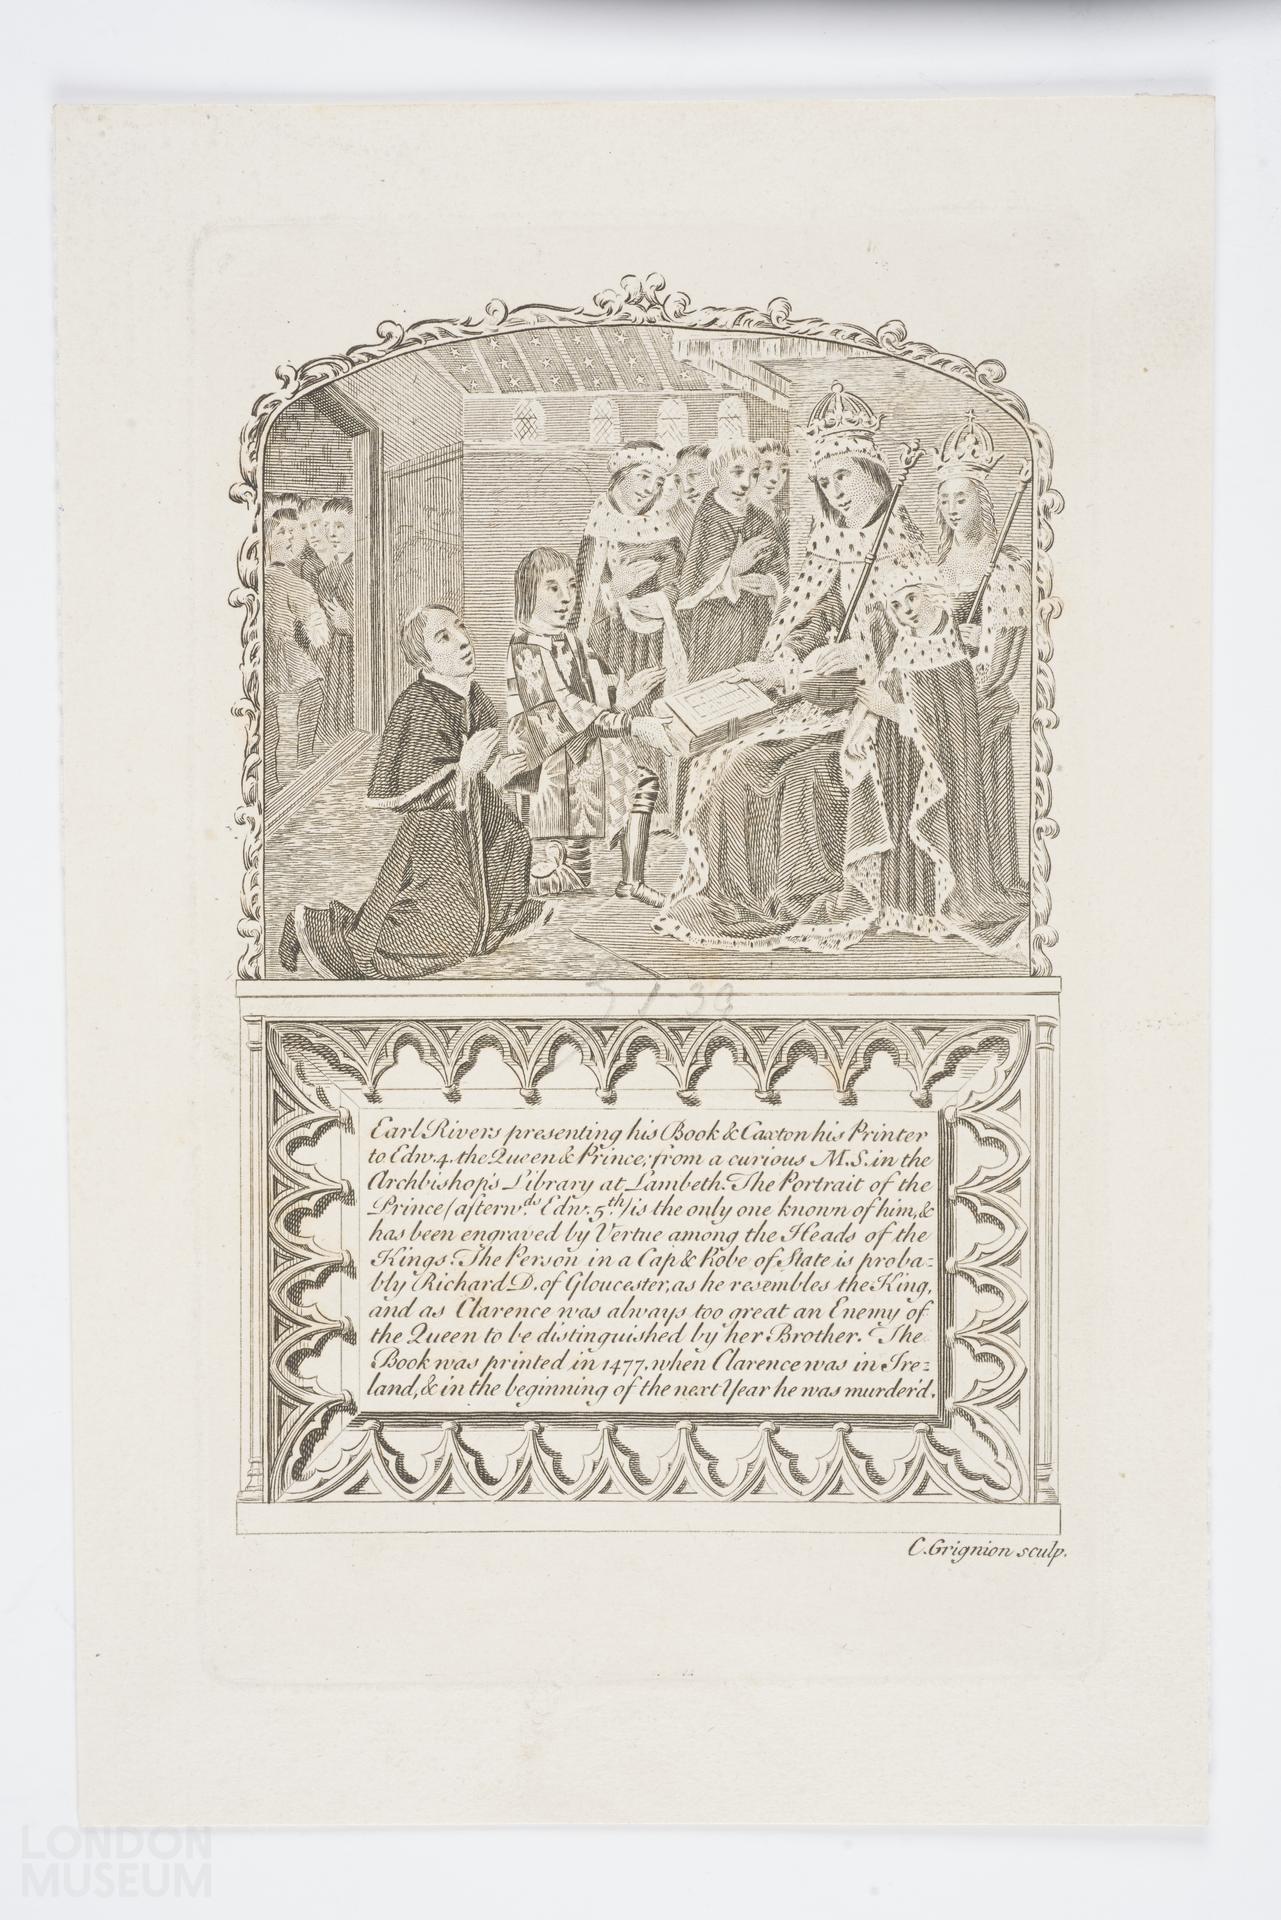 71-39
Earl Rivers presenting his Book & Caxton his Printer
to Edw. 4. the Queen & Prince; from a curious M.S. in the
Archbishop's Library at Lambeth. The Portrait of the
Prince (afterw.ds Edw. 5.th) is the only one known of him, &
has been engraved by Vertue among the Heads of the
Kings: The Person in a Cap & Robe of State is proba=
bly Richard D. of Gloucester, as he resembles the King,
and as Clarence was always too great an Enemy of
the Queen to be distinguished by her Brother. The
Book was printed in 1477, when Clarence was in Ire=
land, & in the beginning of the next Year he was murder'd.
C. Grignion sculp.
LONDON
MUSEUM